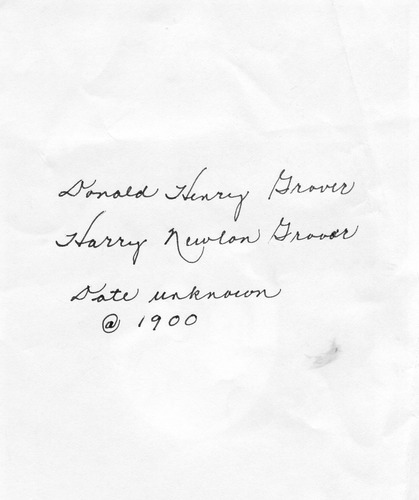 Donald Henry Grover
Harry Newlon Grover
Date unknown
@ 1900